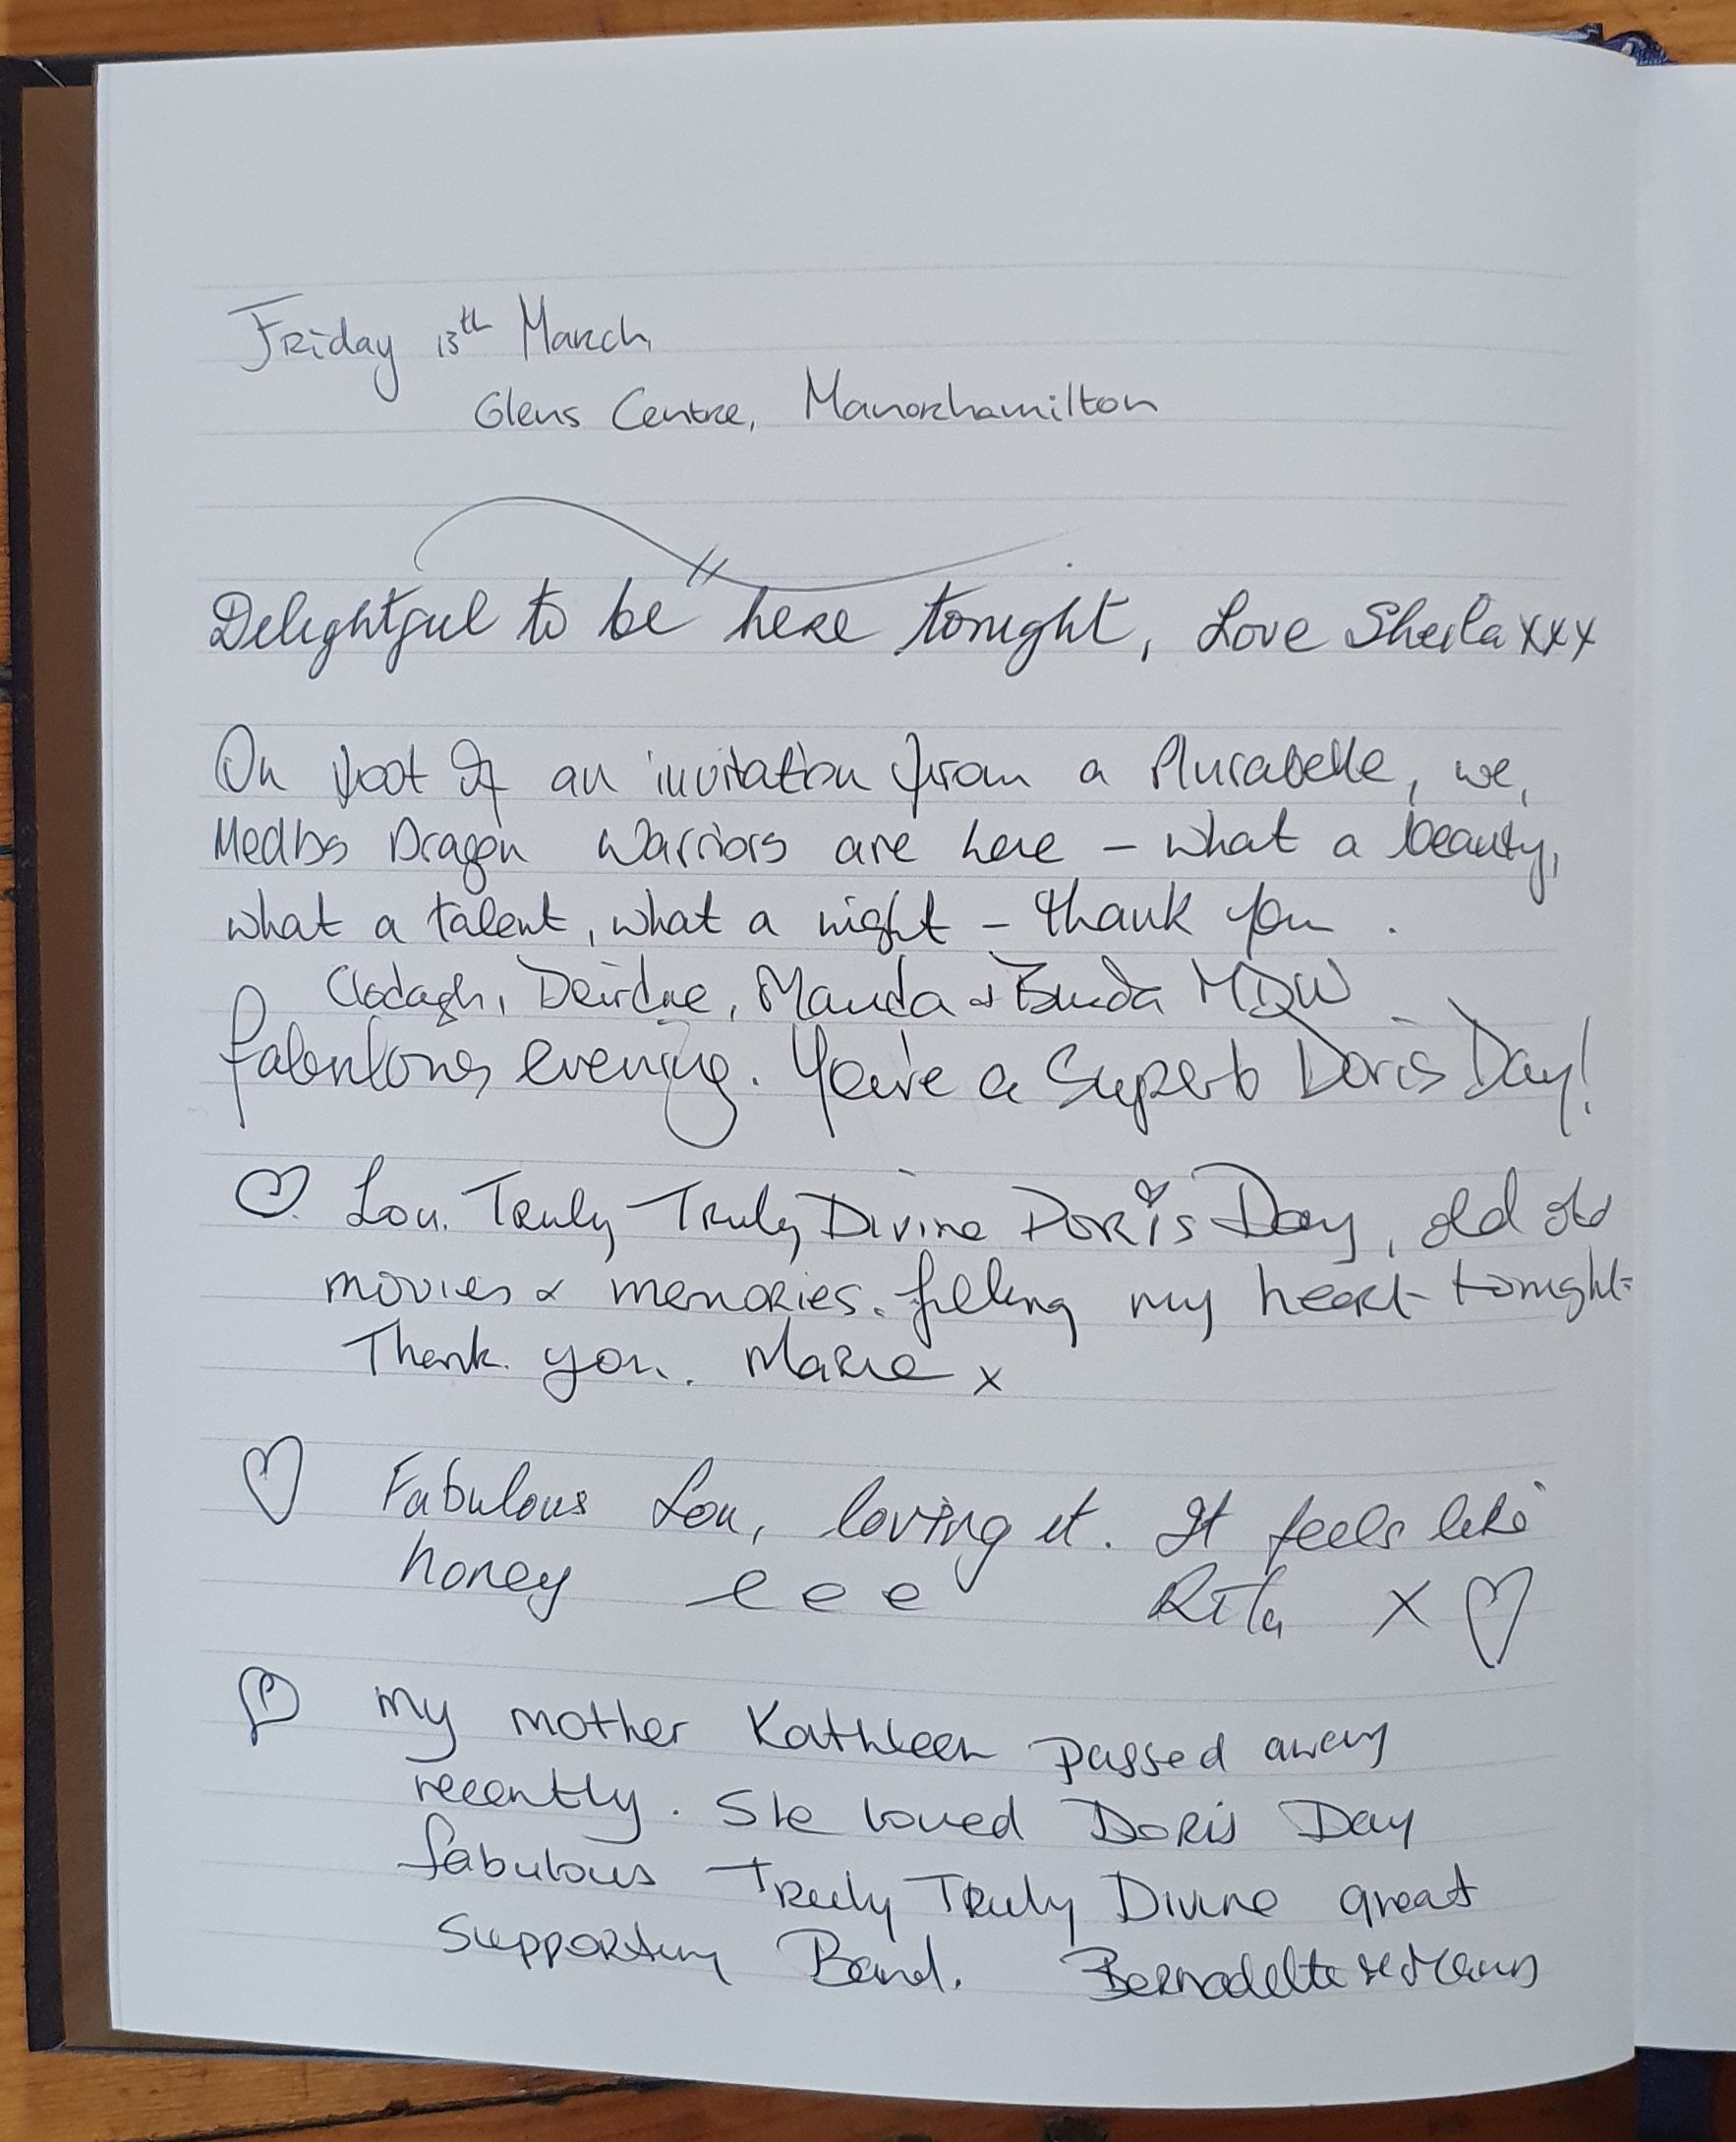 Friday 13th March
Glens Centre, Manorhamilton
Delightful to be here tonight, Love Sheila xxx
On foot of an invitation from a Plurabelle, we,
Medbs Dragon Warriors are here – what a beauty,
what a talent, what a night – thank you.
Clodagh, Deirdre, Manda & MDW
Fabulous evening. You're a Superb Doris Day!
Lou. Truly Truly Divine Doris Day, old old
movies & memories. filling my heart tonight
Thank you. Marie x
Fabulous Lou, loving it. It feels like
honey e e e Rita x
My mother Kathleen passed away
recently. She loved Doris Day
fabulous Truly Truly Divine great
Supporting Band. Bernadette